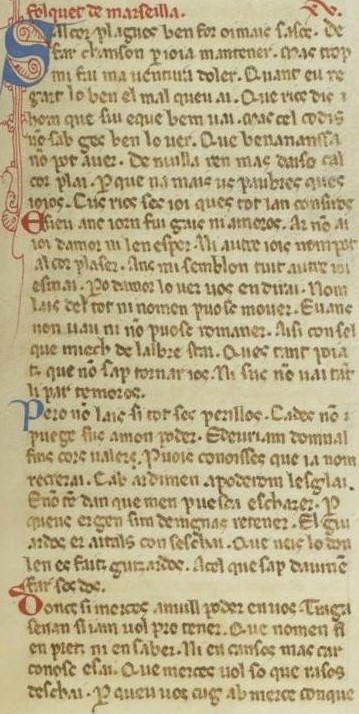 folquet de marseilla. XV.
Sal cor plagues ben for oimais sasos. De
far chanson p ioia mantener. Mas trop
mi fai ma uentura doler. Quant eu re
gart lo ben el mal queu ai. Que rics diz i
hom que sui eque bem uai. Mas cel co dis
nō sab ges ben lo uer. Que benananssa
nō pot auer. De nuilla ren mas daiso cal
cor plai. P que na mais us paubres ques
ioios. Cus rics ses ioi ques tot lan cosiros
E sieu anc iorn fui gais ni amoros. Ar nō ai
ioi damor ni len esper. Ni autre iois nom pot
al cor plaser. Anz mi semblon tuit autre ioi
esmai. Po damor lo uer uos en dirai. Nom
lais del tot ni nomen puosc mouer. Enanz
non uau ni nō puosc romaner. Aisi con cel
que miech de lalbre estai. Ques tant poia
tz que nō sap tornar ios. Ni sus nō uai tāt
li par temoros.
Pero nō lais si tot ses perillos. Cades nō
puege sus amon poder. Edeuriam domnal
fins cors ualer. Puois conoisses que ia nom
recrerai. Cab ardimen apoderom lesglai.
E nō tē dan que men puesca escharer. P
queus er gen sim denignas retener. El gui
ardos er aitals con seschai. Que neis lo don
len es faitz guizardos. Acel que sap dauinē
sfar sos dos.
Doncs si merces a nuill poder en uos. Traga
senan si iam uol pro tener. Que nomen fi
en pretz ni en saber. Ni en cansos mas car
conosc esai. Que merces uol so que rasos
deschai. P queu uos cug ab merce conque